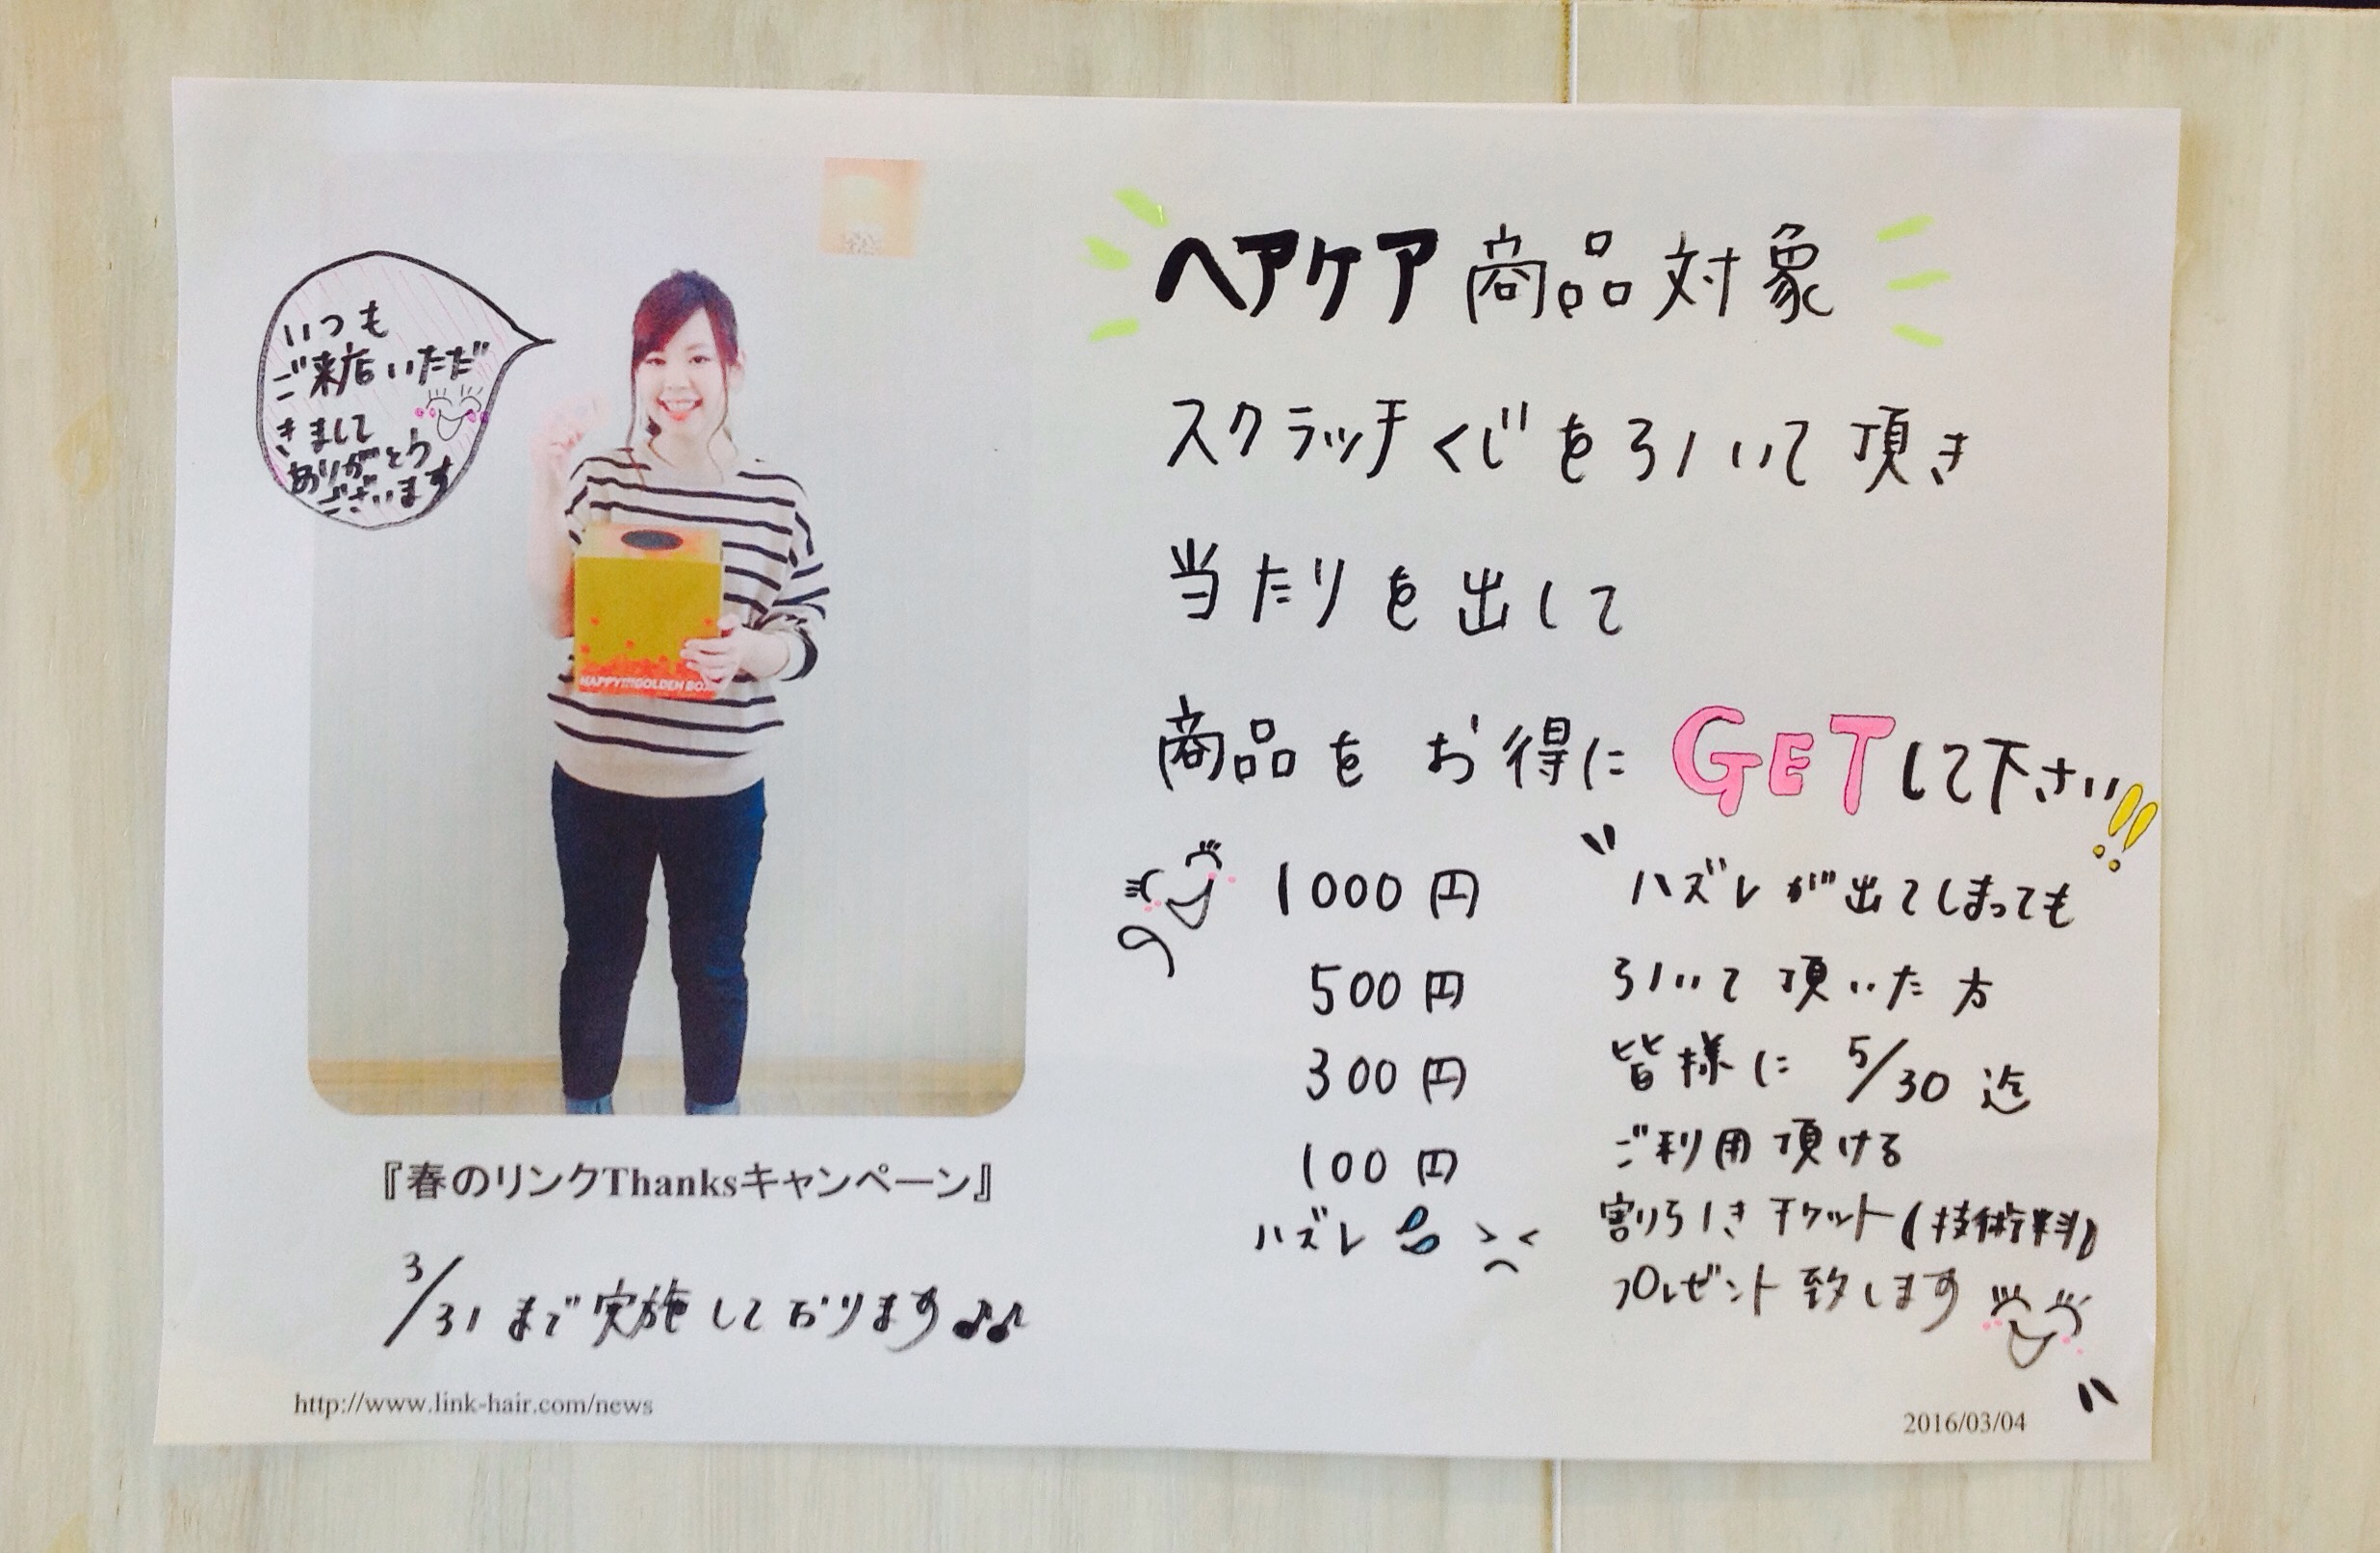 いつも
ご来店いただ
きまして
ありがとう
ございます
HAPPY!!!GOLDEN BO
『春のリンクThanksキャンペーン』
3/31 まで実施しております♪♪
http://www.link-hair.com/news
ヘアケア商品対象
スクラッチくじを引いて頂き
当たりを出して
商品をお得にGETして下さい!!
1000円
500円
300円
100円
ハズレ
"ハズレが出てしまっても
引いて頂いた方
皆様に 5/30 迄
ご利用頂ける
割り引きチケット(技術料)
プレゼント致します"
2016/03/04